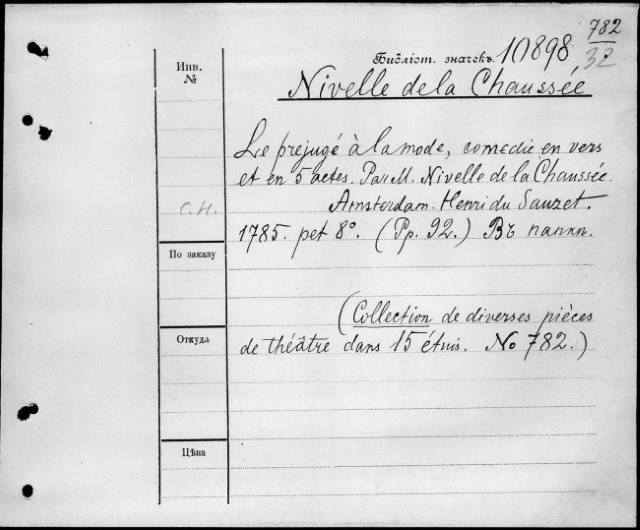 782
32
Инв. №
Библіот. значекъ 10898
Nivelle de la Chaussée
Le prejugé à la mode, comedie en vers
et en 5 actes. Par M. Nivelle de la Chaussée.
Amsterdam. Henri du Sauzet.
С.Н.
1785. pet 8°. (Pp. 92.) Въ папкѣ.
По заказу
(Collection de diverses pièces
Откуда
de théâtre dans 15 étuis. No 782.)
Цѣна